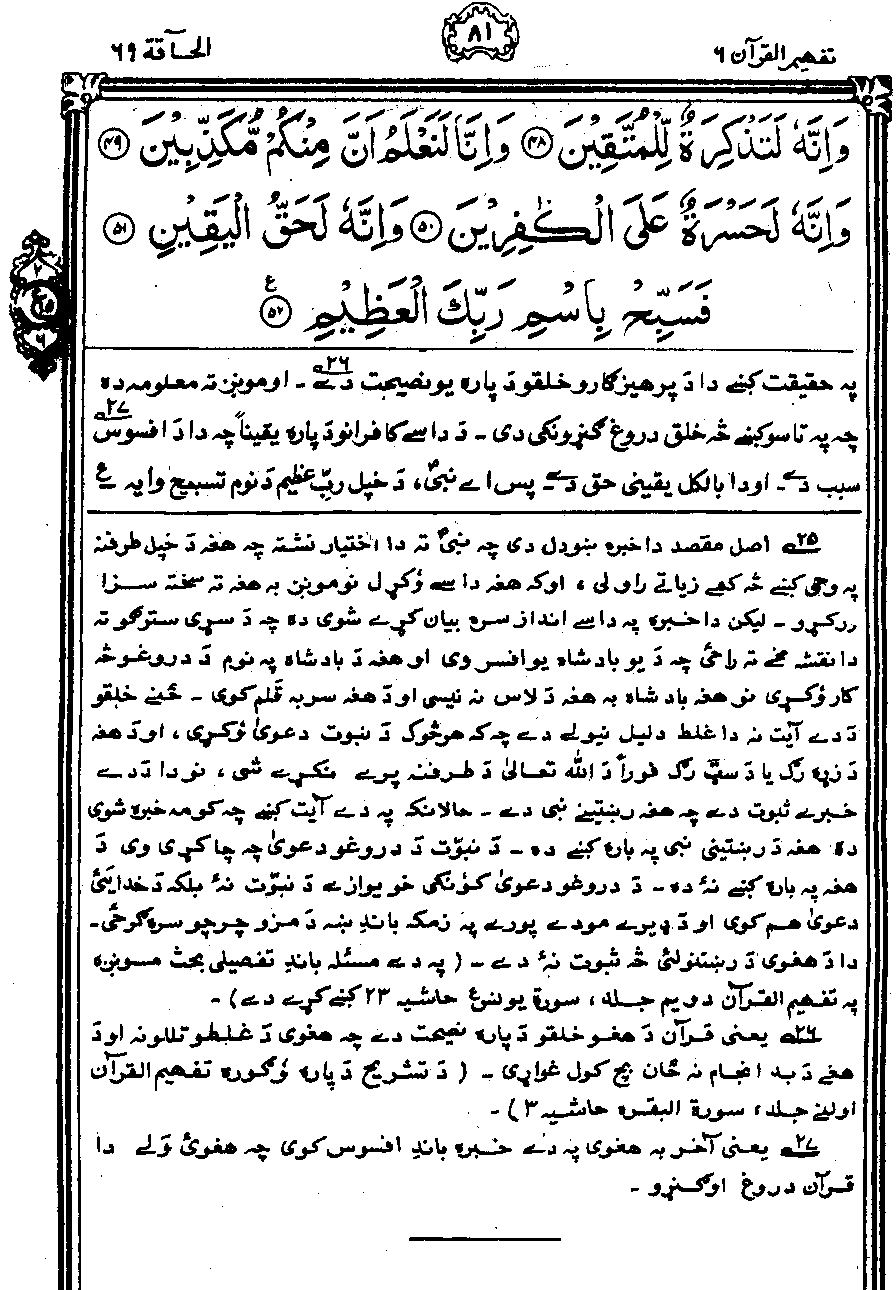 تفهیم القرآن ۶
۸۱
الحآقة ۶۹
وَاِنَّهٗ لَتَذْكِرَةٌ لِّلْمُتَّقِيْنَ ﴿۴۸﴾ وَاِنَّا لَنَعْلَمُ اَنَّ مِنْكُمْ مُّكَذِّبِيْنَ ﴿۴۹﴾
وَاِنَّهٗ لَحَسْرَةٌ عَلَى الْكٰفِرِيْنَ ﴿۵۰﴾ وَاِنَّهٗ لَحَقُّ الْيَقِيْنِ ﴿۵۱﴾
فَسَبِّحْ بِاسْمِ رَبِّكَ الْعَظِيْمِ ﴿۵۲﴾ ع
په حقیقت کښے دا دَ پرهیزگارو خلقو دَ پاره یو نصیحت دے ۲۶ـ او مونږ ته معلومه ده
چه په تاسو کښے څه خلق دروغ ګنړونکی دی ـ دَ داسے کافرانو دَ پاره یقیناً چه دا دَ افسوس ۲۷
سبب دے ـ او دا بالکل یقینی حق دے ـ پس اے نبیؐ، دَ خپل ربِّ عظیم دَ نوم تسبیح وایه ع
۲۵ اصل مقصد دا خبره ښودل دی چه نبیؐ ته دا اختیار نشته چه هغه دَ خپل طرفنه
په وحی کښے څه کمے زیاتے راولی ، او که هغه داسے وُکړل نو مونږ به هغه ته سخته سزا
ورکړو ـ لیکن دا خبره په داسے انداز سره بیان کړے شوی ده چه دَ سړی سترګو ته
دا نقشه مخے ته راځی چه دَ یو بادشاه یو افسر وی او هغه دَ بادشاه په نوم دَ دروغو څه
کار وُکړی نو هغه بادشاه به هغه دَ لاس نه نیسی او دَ هغه سر به قلم کوی ـ ځنے خلقو
دَ دے آیت نه دا غلط دلیل نیولے دے چه که هر څوک دَ نبوت دعویٰ وُکړی ، او دَ هغه
دَ زړه رګ یا دَ سټ رګ فوراً دَ الله تعالیٰ دَ طرفنه پرے نکړے شی ، نو دا دَ دے
خبرے ثبوت دے چه هغه رښتینے نبی دے ـ حالانکه په دے آیت کښے چه کومه خبره شوی
ده هغه دَ رښتینی نبی په باره کښے ده ـ دَ نبوّت دَ دروغو دعویٰ چه چا کړی وی دَ
هغه په باره کښے نهٔ ده ـ دَ دروغو دعویٰ کوُنکی خو یوازے دَ نبوّت نهٔ بلکه دَ خدایئی
دعویٰ هم کوی او دَ ډیرے مودے پورے په زمکه باندِ ښه دَ مزو چرچو سره ګرځی ـ
دا دَ هغوی دَ رښتنولئی څه ثبوت نهٔ دے ـ ( په دے مسئله باندِ تفصیلی بحث مونږه
په تفهیم القرآن دویم جلد ، سورة یونس حاشیه ۲۳ کښے کړے دے ) ـ
۲۶ یعنی قرآن دَ هغو خلقو دَ پاره نصیحت دے چه هغوی دَ غلطو تللو نه او دَ
هغے دَ بد انجام نه ځان بچ کول غواړی ـ ( دَ تشریح دَ پاره وُګوره تفهیم القرآن
اولنے جلد ، سورة البقره حاشیه ۳ ) ـ
۲۷ یعنی آخر به هغوی په دے خبره باندِ افسوس کوی چه هغوئ ولے دا
قرآن دروغ اوګنړو ـ